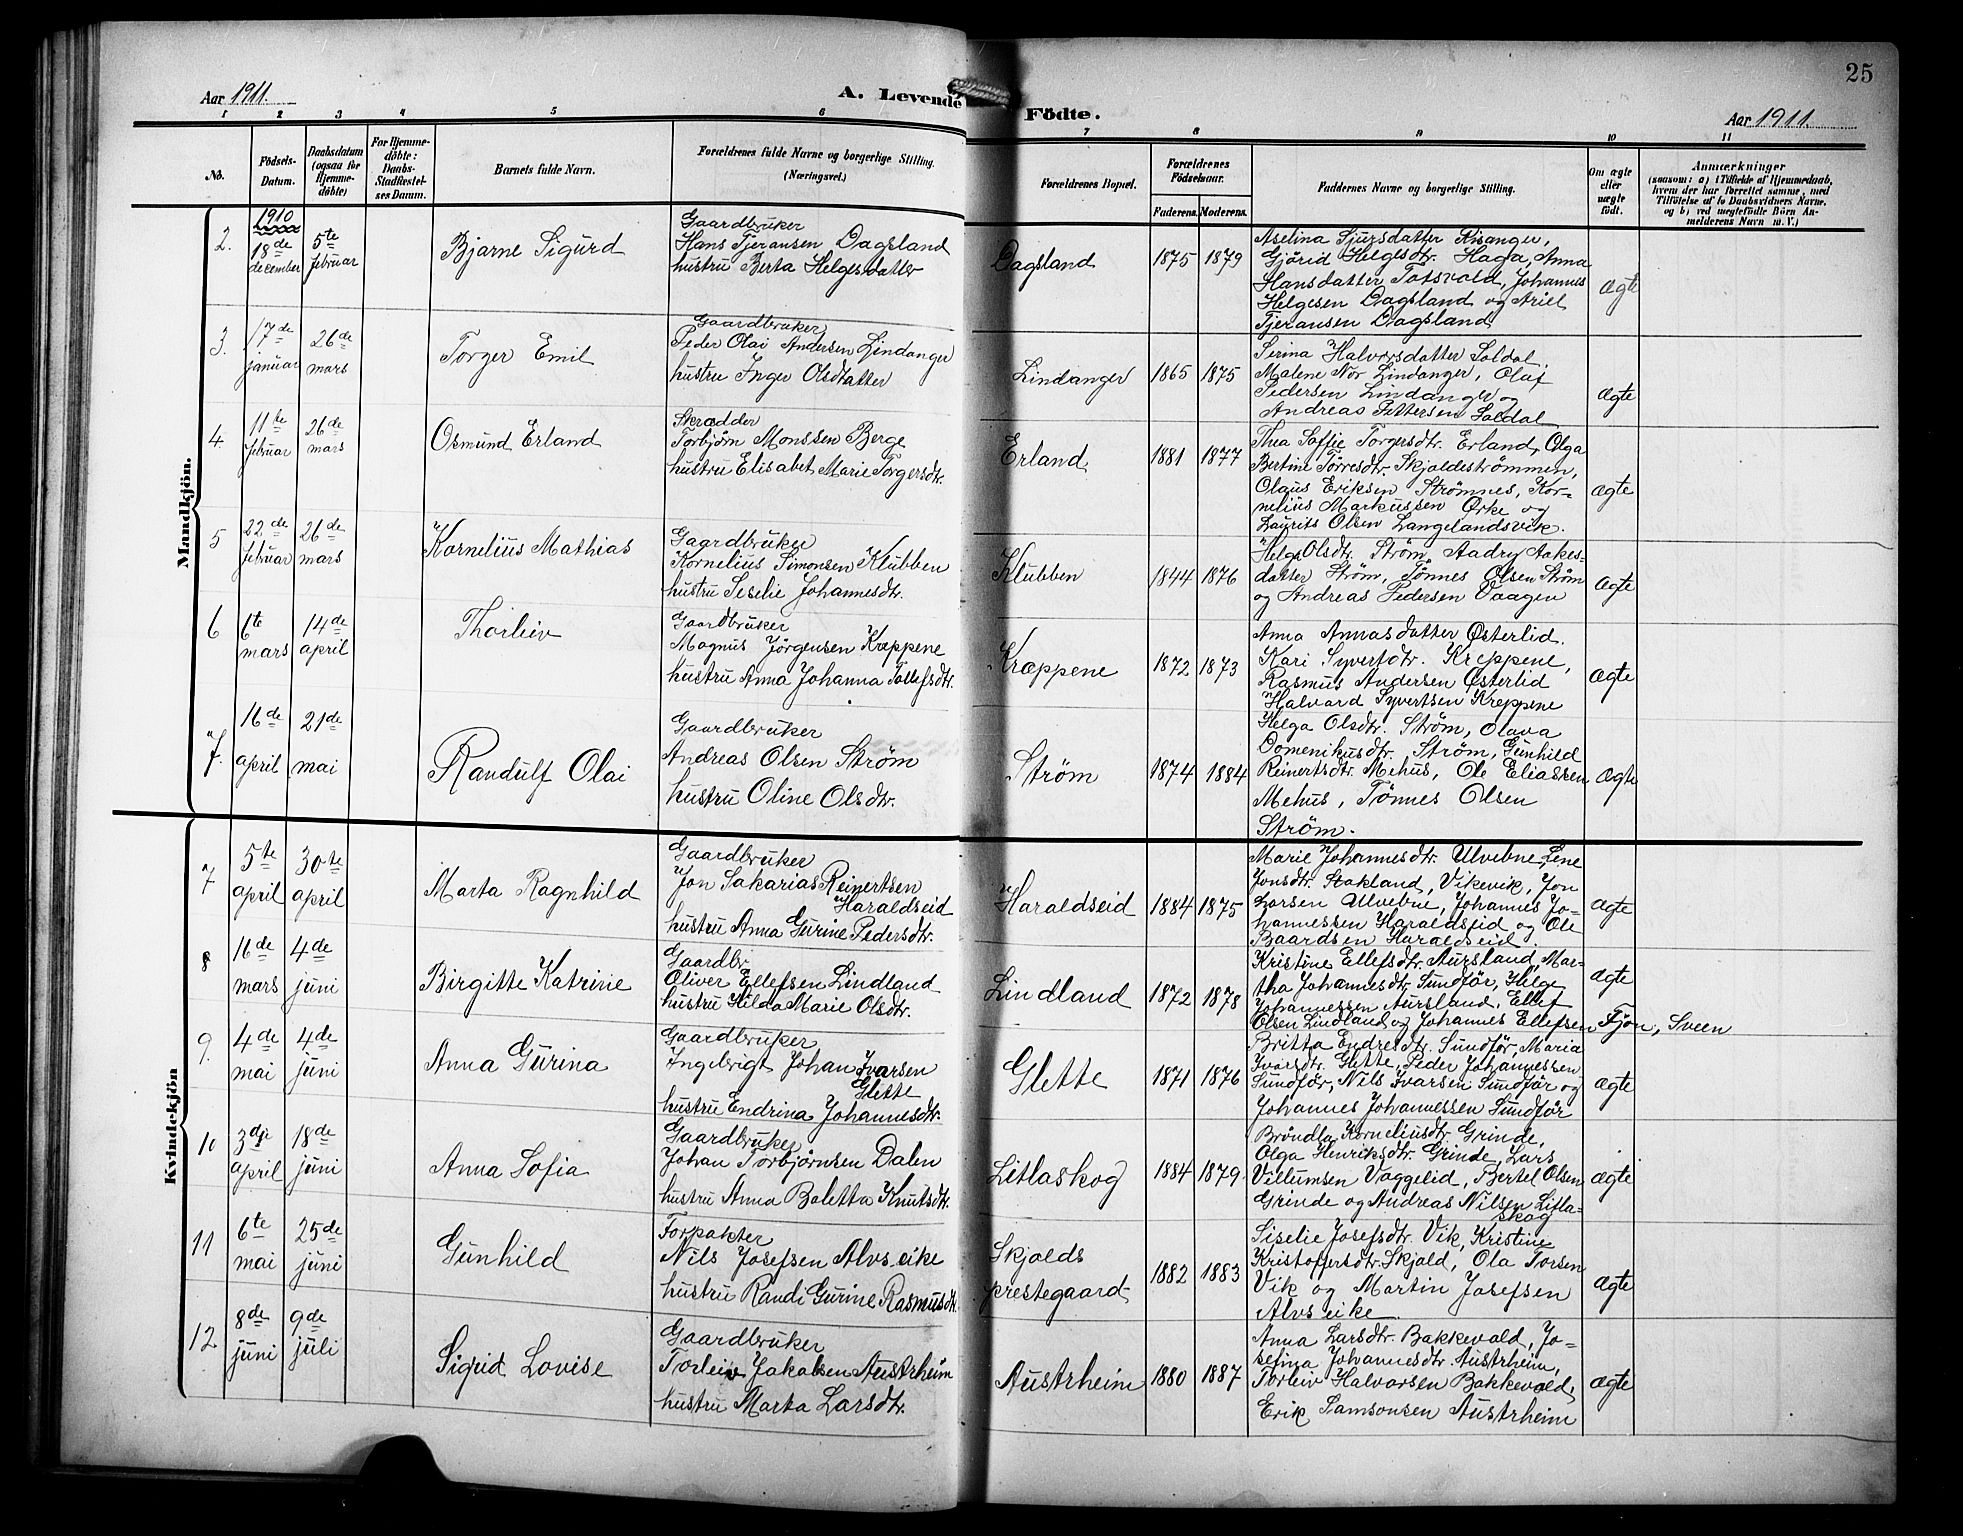 25
Aar 1911.
A. Levende Födte.
Aar 1911.
1 2 3 4 5 6 7 8 9 10 11
No.
Födsels-
Datum.
Daabsdatum
(ogsaa for
Hjemme-
döbte)
For Hjemme-
döbte:
Daabs-
Stadfæstel-
ses Datum.
Barnets fulde Navn.
Forældrenes fulde Navne og borgerlige Stilling.
(Næringsvei.)
Forældrenes Bopæl.
Forældrenes
Födselsaar.
Faderens. Moderens.
Faddernes Navne og borgerlige Stilling.
Om ægte
eller
uægte
födt.
Anmærkninger
(saasom: a) i Tilfælde af Hjemmedaab,
hvem der har forrettet samme, med
Tilföielse af to Daabsvidners Navne.
og b) ved uægtefödte Börn An-
melderens Navn m. V.)
Mandkjön.
2.
1910
18de
december
5te
februar
Bjarne Sigurd
Gaardbruker
Hans Tjeransen Dagsland
hustru Berta Helgesdatter
Dagsland
1875 1879
Aselina Sjursdatter Risanger,
Gjörid Helgesdtr. Haga, Anna
Hansdatter Totsvold, Johannes
Helgesen Dagsland og Ariel
Tjeransen Dagsland
Ægte
3.
17de
januar
26de
mars
Torger Emil
Gaardbruker
Peder Olai Andersen Lindanger
hustru Inger Olsdtatter
Lindanger
1865 1875
Serina Halvorsdatter Soldal
Malene Nor Lindanger, Olaf
Pedersen Lindanger og
Andreas Pettersen Soldal
Ægte
4.
11te
februar
26de
mars
Osmund Erland
Skrædder
Torbjörn Monssen Berge
hustru Elisabet Marie Torgersdtr.
Erland
1881 1877
Thea Sofie Torgersdtr. Erland, Olga
Bertine Törresdtr. Skjoldeströmmen,
Olaus Eriksen Strömnes, Kor-
nelius Markussen Örke og
Laurits Olsen Langelandsvik.
Ægte
5
22de
februar
26de
mars
Kornelius Mathias
Gaardbruker
Kornelius Simonsen Klubben
hustru Seselie Johannesdtr.
Klubben
1844 1876
Helga Olsdtr. Ström, Aadry Aakes-
datter Ström, Tönnes Olsen Ström
og Andreas Pedersen Vaagen
Ægte
6
6te
mars
14de
april
Thorleiv
Gaardbruker
Magnus Jörgensen Kræppene
hustru Anna Johanna Tollefsdtr.
Kræppene
1872 1873
Anna Annasdatter Österlid.
Kari Syvertdtr. Kreppene,
Rasmus Andersen Österlid
Halvard Syvertsen Kreppene
Ægte
7.
16de
april
21de
mai
Randulf Olai
Gaardbruker
Andreas Olsen Ström
hustru Oline Olsdtr.
Ström
1874 1884
Helga Olsdtr. Ström, Olava
Domenikusdtr. Ström, Gunhild
Reinertsdtr. Mehus, Ole Eliassen
Mehus, Tönnes Olsen
Ström.
Ægte
Kvindekjön
7
5te
april
30te
april
Marta Ragnhild
Gaardbruker
Jon Sakarias Reinertsen
Haraldseid
hustru Anna Gurine Pedersdtr.
Haraldseid
1884 1875
Marie Johannesdtr. Ulvebne, Lene
Jonsdtr. Stokland, Vikevik, Jon
Larsen Ulvebne, Johannes Jo-
hannessen Haraldseid og Ole
Baardsen Haraldseid.
Ægte
8
16de
mars
4de
juni
Birgitte Katrine
Gaardbr
Oliver Ellefsen Lindland
hustru Hilda Marie Olsdtr.
Lindland
1872 1878
Kristine Ellefsdtr. Aursland, Mar-
tha Johannesdtr. Sundför, Helge
Johannessen Aursland, Ellef
Olsen Lindland og Johannes Ellefsen Fjon, Sveen
Ægte
9.
4de
mai
4de
juni
Anna Gurina
Gaardbruker
Ingebrigt Johan Ivarsen
Glette
hustru Endrina Johannesdtr.
Glette
1871 1876
Britta Endresdtr. Sundför, Maria
Ivarsdtr. Glette, Peder Johannessen
Sundför, Nils Ivarsen Sundför og
Johannes Johannessen Sundför
Ægte
10
3dje
april
18de
juni
Anna Sofia
Gaardbruker
Johan Torbjörnsen Dalen
hustru Anna Boletta Knutsdtr.
Litlaskog
1884 1879.
Bröndla Korneliusdtr. Grinde,
Olga Henriksdtr. Grinde, Lars
Villumsen Vaggelid, Bertel Olsen
Grinde og Andreas Nilsen Litla-
skog
Ægte
11
6te
mai
25de
juni
Gunhild
Forpakter
Nils Josefsen Alvseike
hustru Randi Gurine Rasmusdtr.
Skjolds
prestegaard
1882 1883
Siselie Josefsdtr. Vik, Kristine
Kristoffersdtr. Skjold, Ola Torsen
Vik og Martin Josefsen
Alvseike
Ægte
12
8de
juni
9de
juli
Sigrid Lovise
Gaardbruker
Torleiv Jakobsen Austrheim
hustru Marta Larsdtr.
Austrheim
1880 1887
Anna Larsdtr. Bakkevold, Jo-
sefina Johannesdtr. Austrheim,
Torleiv Halvorsen Bakkevold,
Erik Samsonsen Austrheim
Ægte